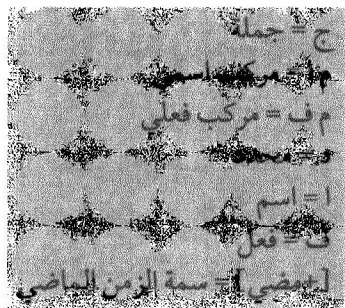 ج = جملة
م ا = مركب اسمي
م ف = مركب فعلي
ا = اسم
ف = فعل
[+مضي] = سمة الزمن الماضي